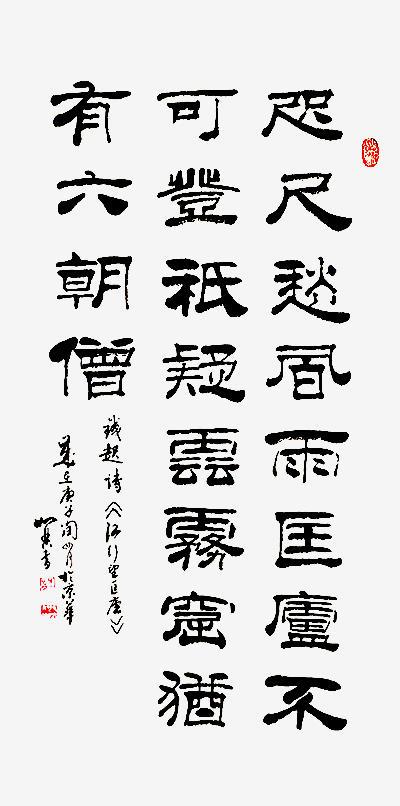 咫尺愁風雨匡廬不
可登祇疑雲霧窟猶
有六朝僧
錢起詩《江行望匡廬》
歲在庚子閏四月於京華